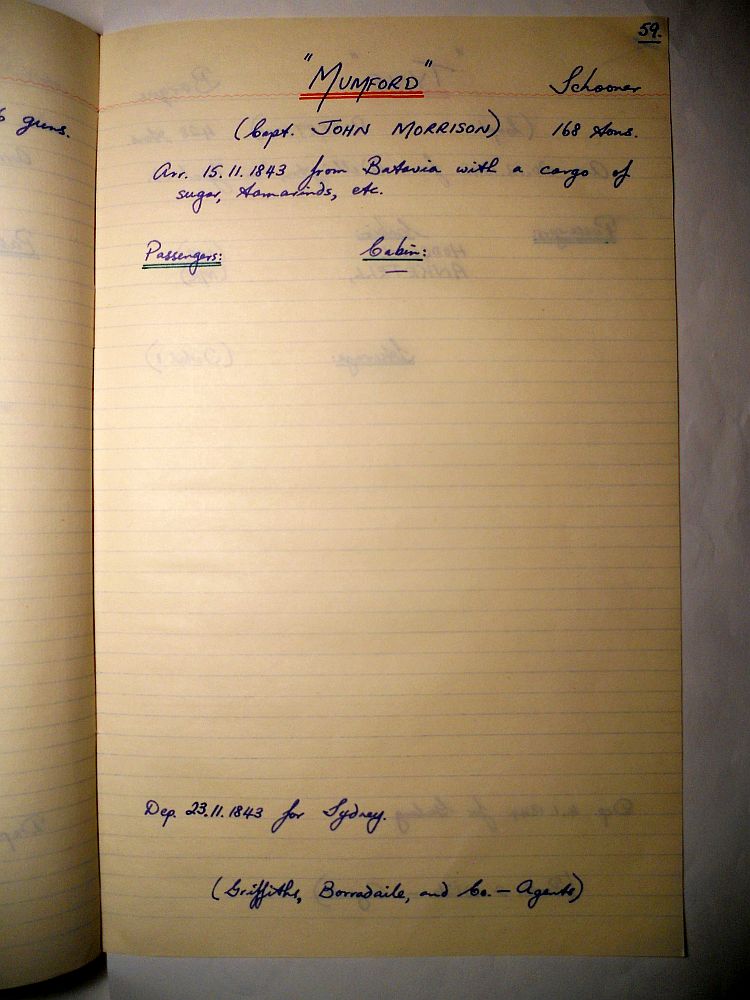 59.
"MUMFORD" Schooner
(Capt. JOHN MORRISON) 168 tons.
Arr. 15.11.1843 from Batavia with a cargo of
sugar, tamarinds, etc.
Passengers: Cabin:
—
Dep. 23.11.1843 for Sydney.
(Griffiths, Borradaile, and Co. — Agents)
guns.